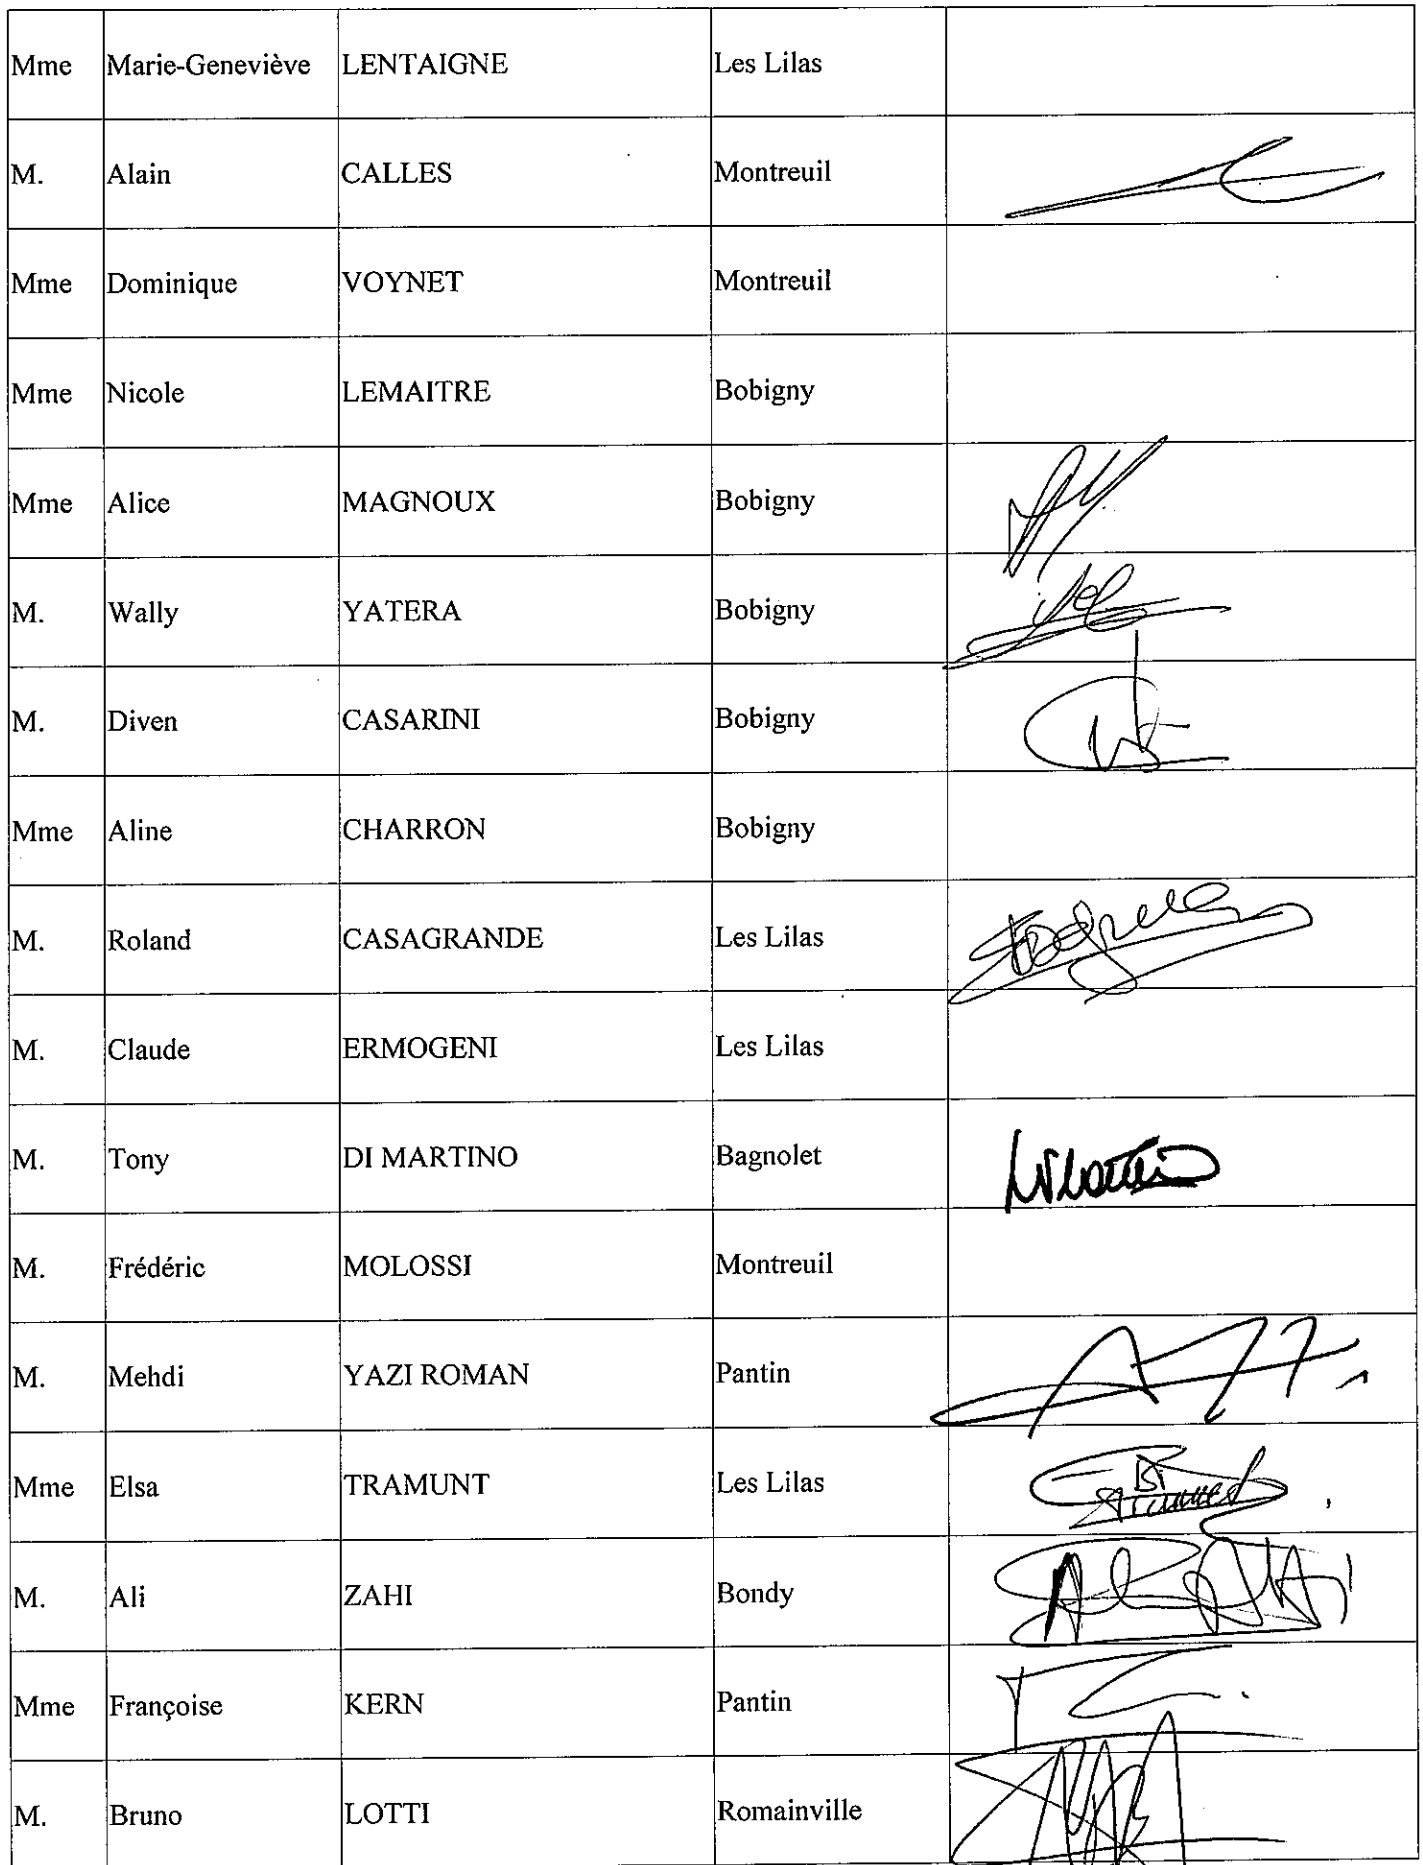 Mme Marie-Geneviève LENTAIGNE Les Lilas
M. Alain CALLES Montreuil
Mme Dominique VOYNET Montreuil
Mme Nicole LEMAITRE Bobigny
Mme Alice MAGNOUX Bobigny
M. Wally YATERA Bobigny
M. Diven CASARINI Bobigny
Mme Aline CHARRON Bobigny
M. Roland CASAGRANDE Les Lilas
M. Claude ERMOGENI Les Lilas
M. Tony DI MARTINO Bagnolet
M. Frédéric MOLOSSI Montreuil
M. Mehdi YAZI ROMAN Pantin
Mme Elsa TRAMUNT Les Lilas
M. Ali ZAHI Bondy
Mme Françoise KERN Pantin
M. Bruno LOTTI Romainville